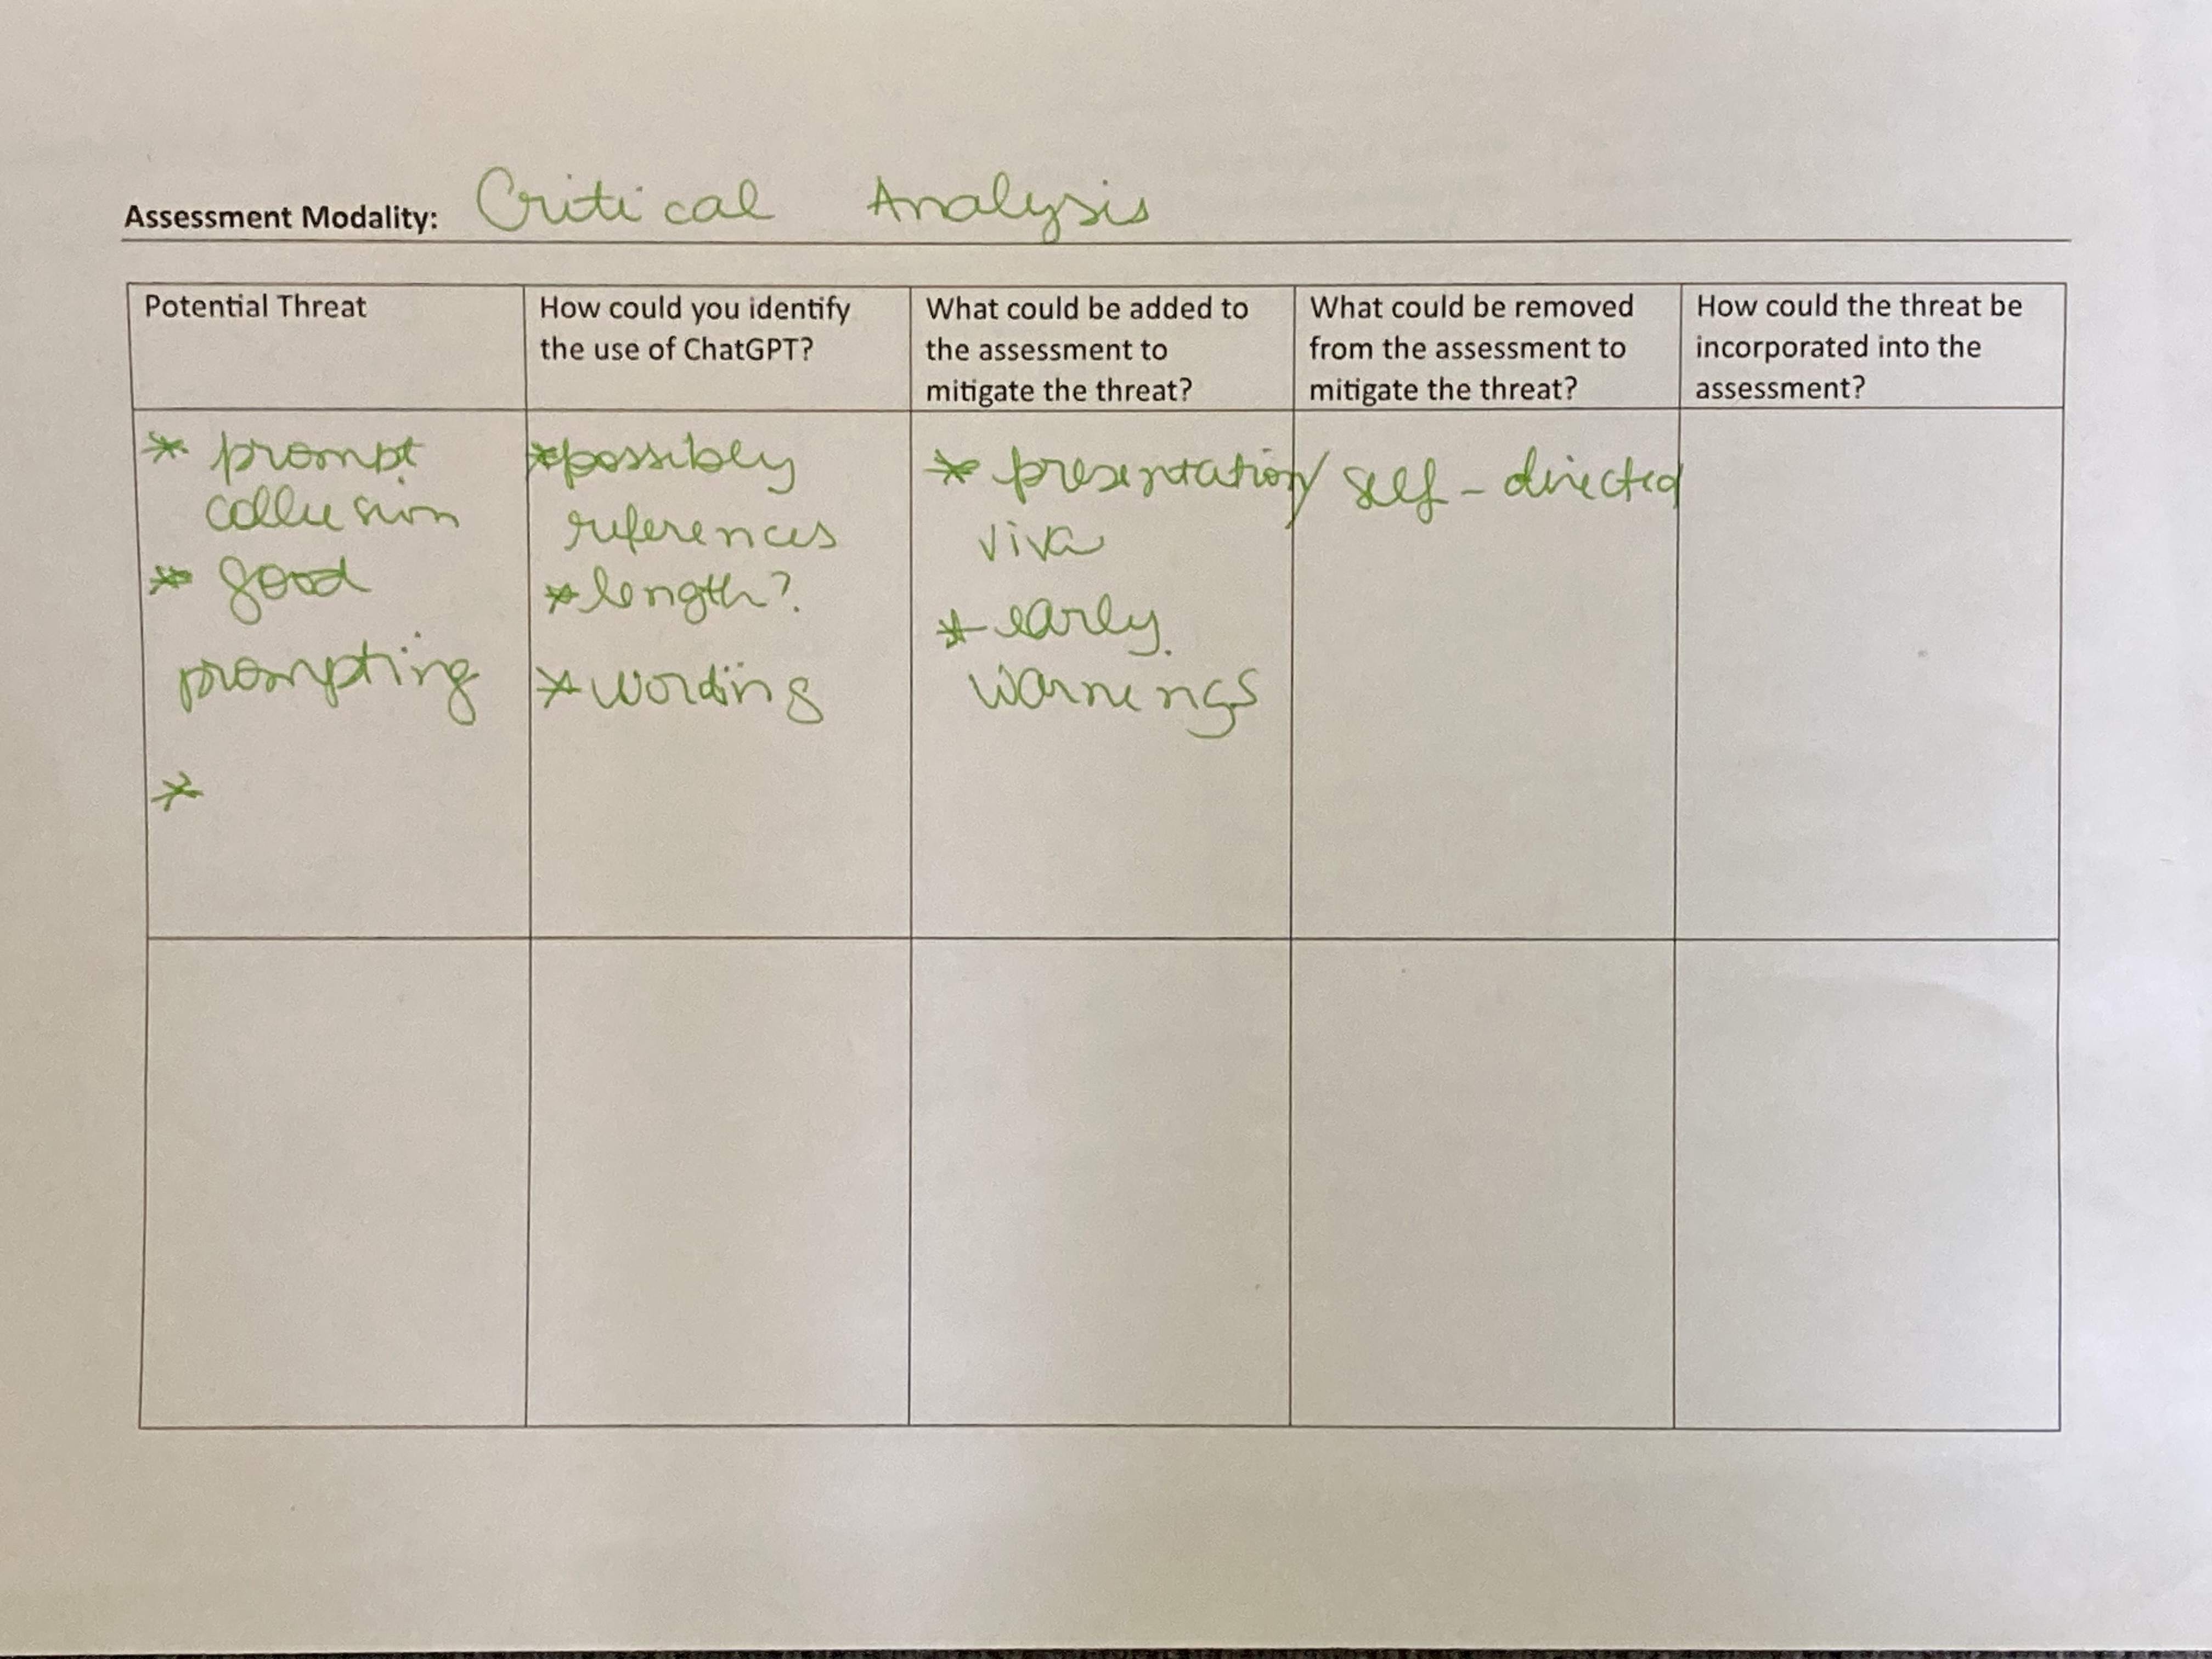 Assessment Modality: Critical Analysis
Potential Threat
How could you identify
the use of ChatGPT?
What could be added to
the assessment to
mitigate the threat?
What could be removed
from the assessment to
mitigate the threat?
How could the threat be
incorporated into the
assessment?
* prompt
collusion
* good
prompting
*
* possibly
references
* length?
* wording
* presentation/
viva
* early
warnings
self-directed